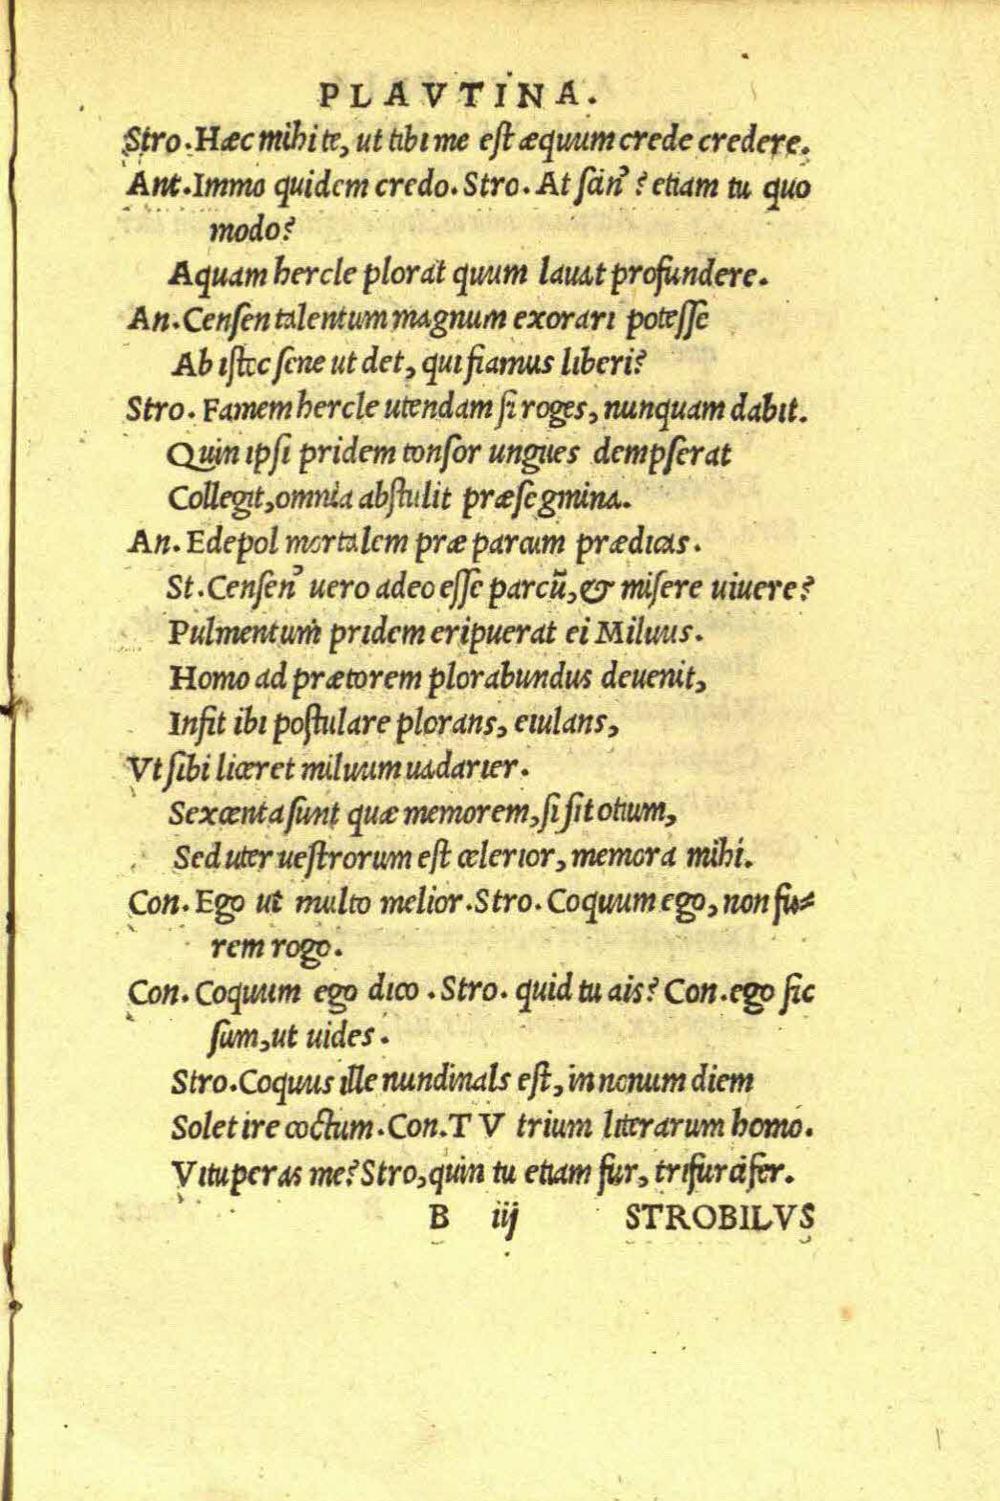 PLAVTINA.
Stro. Hæc mihi te, ut tibi me est æquum crede credere.
Ant. Immo quidem credo. Stro. At scin' ? etiam tu quo
modo?
Aquam hercle plorat quum lauat profundere.
An. Censen talentum magnum exorari potesse
Ab istec sene ut det, qui fiamus liberi?
Stro. Famem hercle utendam si roges, nunquam dabit.
Quin ipsi pridem tonsor ungues dempserat
Collegit, omnia abstulit præsegmina.
An. Edepol mortalem præ parcum prædicas.
St. Censen' uero adeo esse parcū, & misere uiuere?
Pulmentum pridem eripuerat ei Miluus.
Homo ad prætorem plorabundus deuenit,
Infit ibi postulare plorans, eiulans,
Vt sibi liceret miluum uadarier.
Sexcenta sunt quæ memorem, si sit otium,
Sed uter uestrorum est celerior, memora mihi.
Con. Ego ut multo melior. Stro. Coquum ego, non fu-
rem rogo.
Con. Coquum ego dico . Stro. quid tu ais? Con. ego sic
sum, ut uides.
Stro. Coquus ille nundinals est, in nonum diem
Solet ire coctum. Con. TV trium literarum homo.
Vituperas me? Stro, quin tu etiam fur, trifurcifer.
B iij STROBILVS